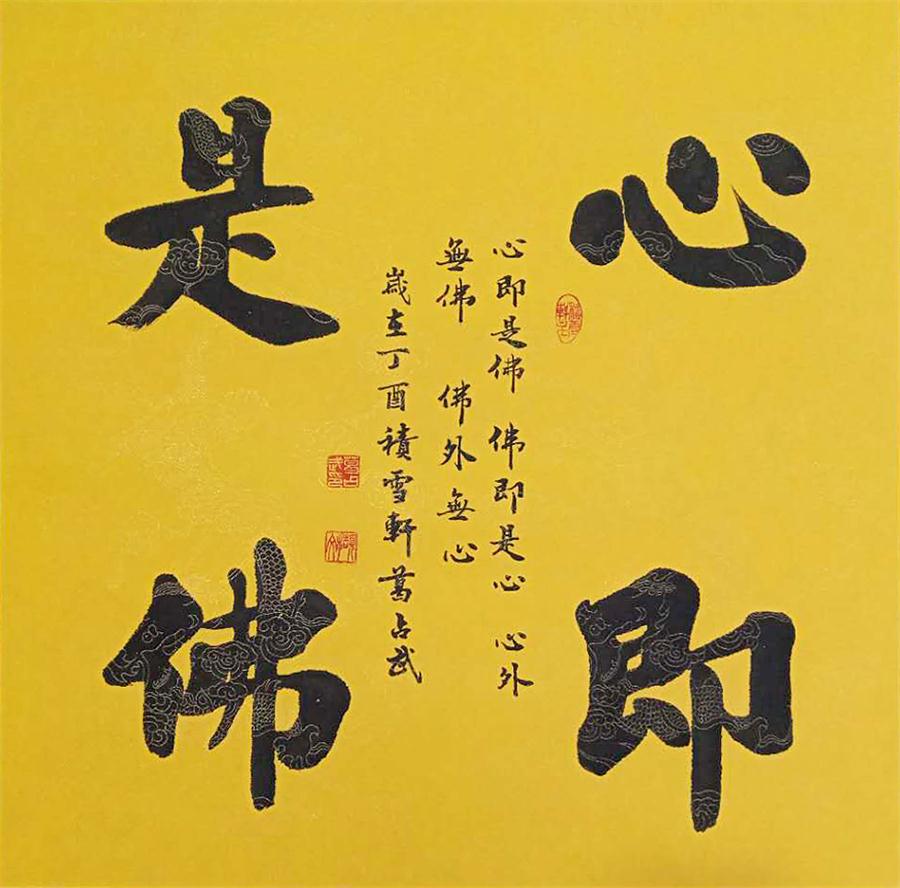 心即
是佛
心即是佛 佛即是心 心外
無佛 佛外無心
歲在丁酉積雪軒葛占武
葛占武印